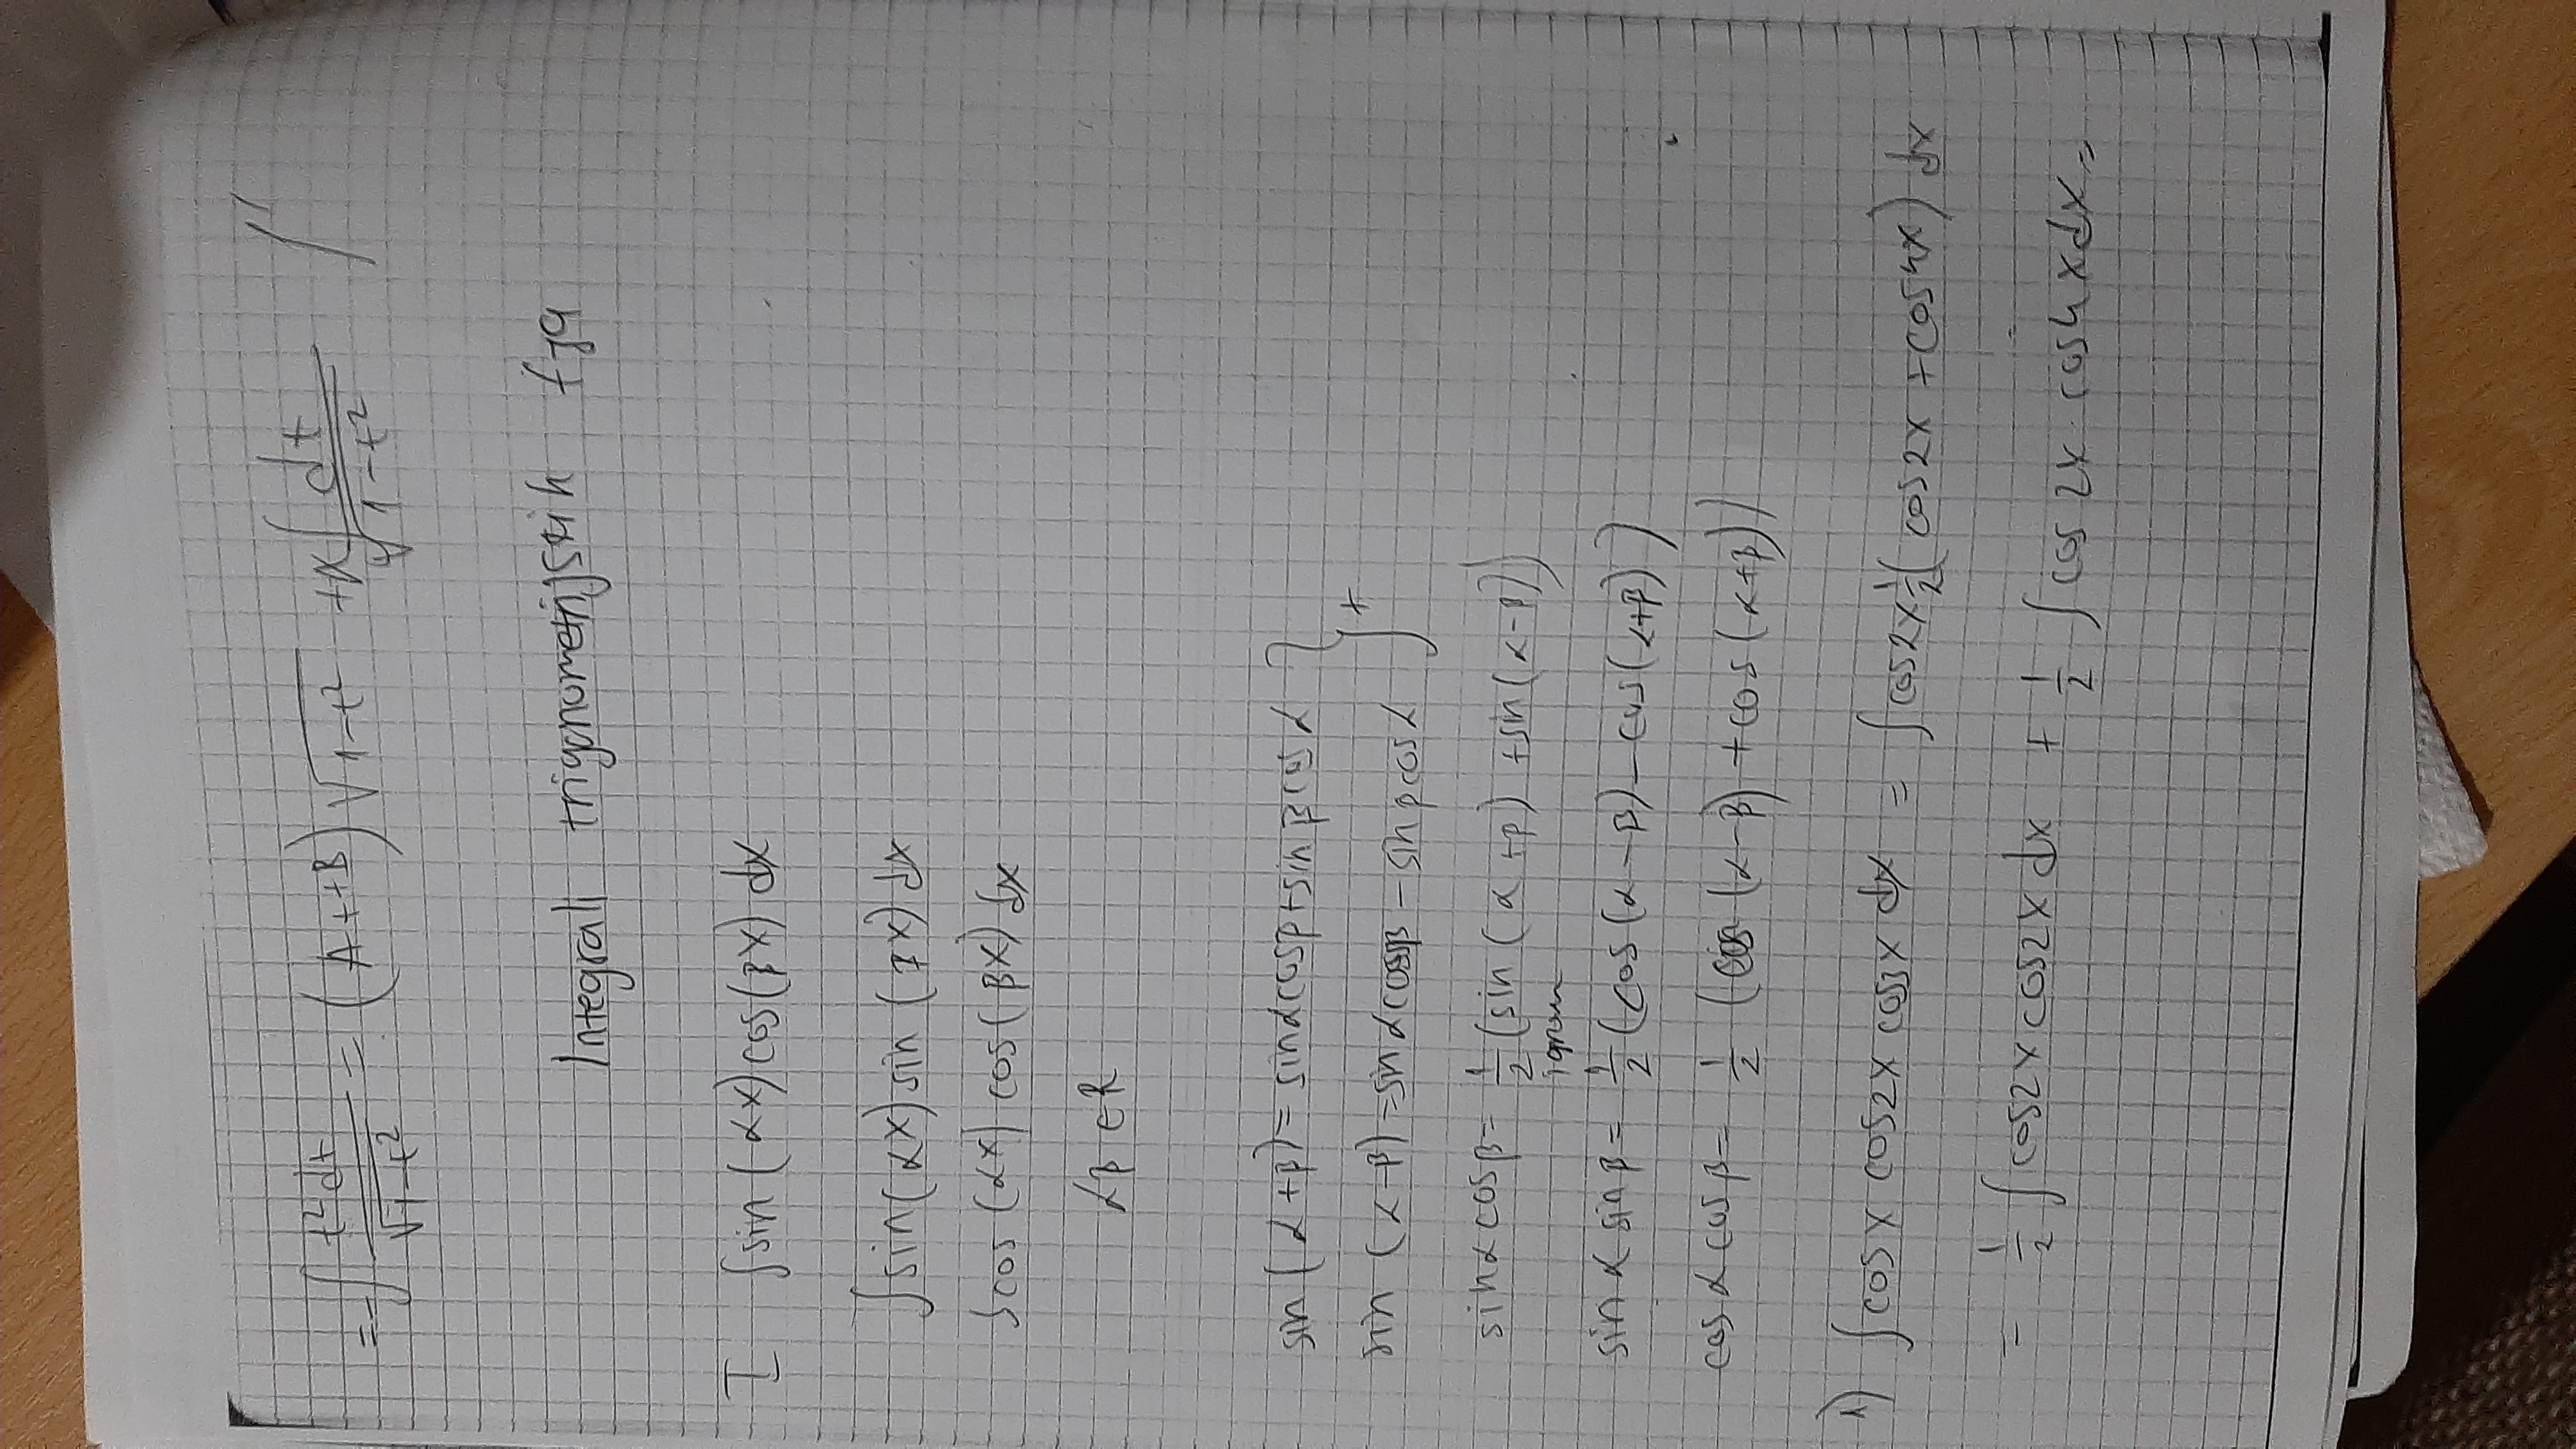 = -∫ t²dt/√(1-t²) = (At+B)√(1-t²) + λ∫ dt/√(1-t²) /'
Integrali trigonometrijskih fja
I ∫sin(αx)cos(βx)dx
∫sin(αx)sin(βx)dx
∫cos(αx)cos(βx)dx
αβ∈R
sin(α+β)=sinαcosβ+sinβcosα } +
sin(α-β)=sinαcosβ-sinβcosα
sinαcosβ= 1/2 (sin(α+β)+sin(α-β))
sinαsinβ= 1/2 (cos(α-β)-cos(α+β))
cosαcosβ= 1/2 (cos(α-β)+cos(α+β))
1) ∫cosx cos2x cos3x dx = ∫cos2x 1/2 (cos2x+cos4x)dx
= 1/2 ∫cos2x cos2x dx + 1/2 ∫cos2x·cos4x dx =